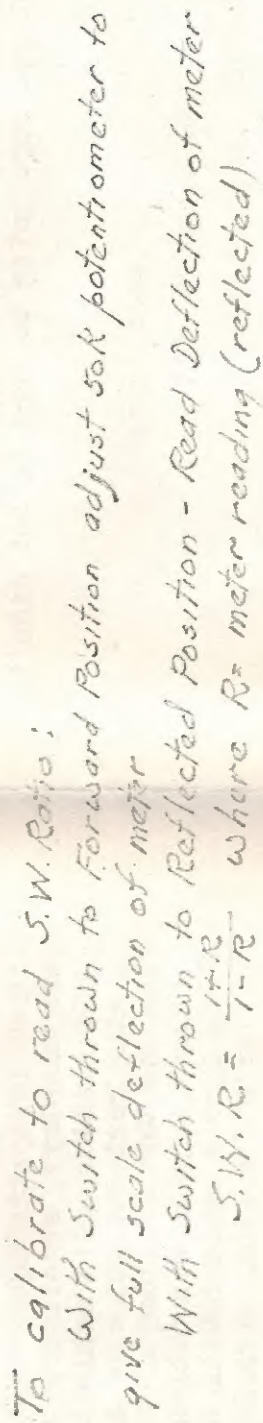 To calibrate to read S.W. Ratio:
With Switch thrown to Forward Position adjust 50K potentiometer to
give full scale deflection of meter
With Switch thrown to Reflected Position - Read Deflection of meter
S.W.R. = 1+R / 1-R where R = meter reading (reflected)